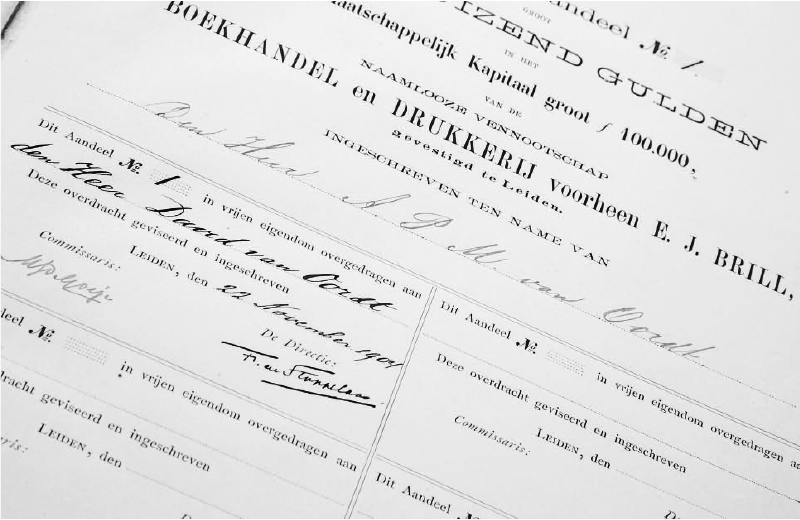 andeel № 1.
GROOT
IZEND GULDEN
IN HET
aatschappelijk Kapitaal groot f 100.000,
VAN DE
NAAMLOOZE VENNOOTSCHAP
BOEKHANDEL en DRUKKERIJ voorheen E. J. BRILL,
gevestigd te Leiden.
INGESCHREVEN TEN NAME VAN
Den Heer A. P. M. van Oordt
Dit Aandeel №. 1 in vrijen eigendom overgedragen aan
den Heer David van Oordt
Deze overdracht geviseerd en ingeschreven
LEIDEN, den 22 November 1904
Commissaris:
De Directie:
deel №. in vrijen eigendom overgedragen aan
dracht geviseerd en ingeschreven
LEIDEN, den
ris:
Dit Aandeel №. in vrijen eigendom overgedragen aa
Deze overdracht geviseerd en ingeschreven
LEIDEN, den
Commissaris:
Dit Aandeel №.